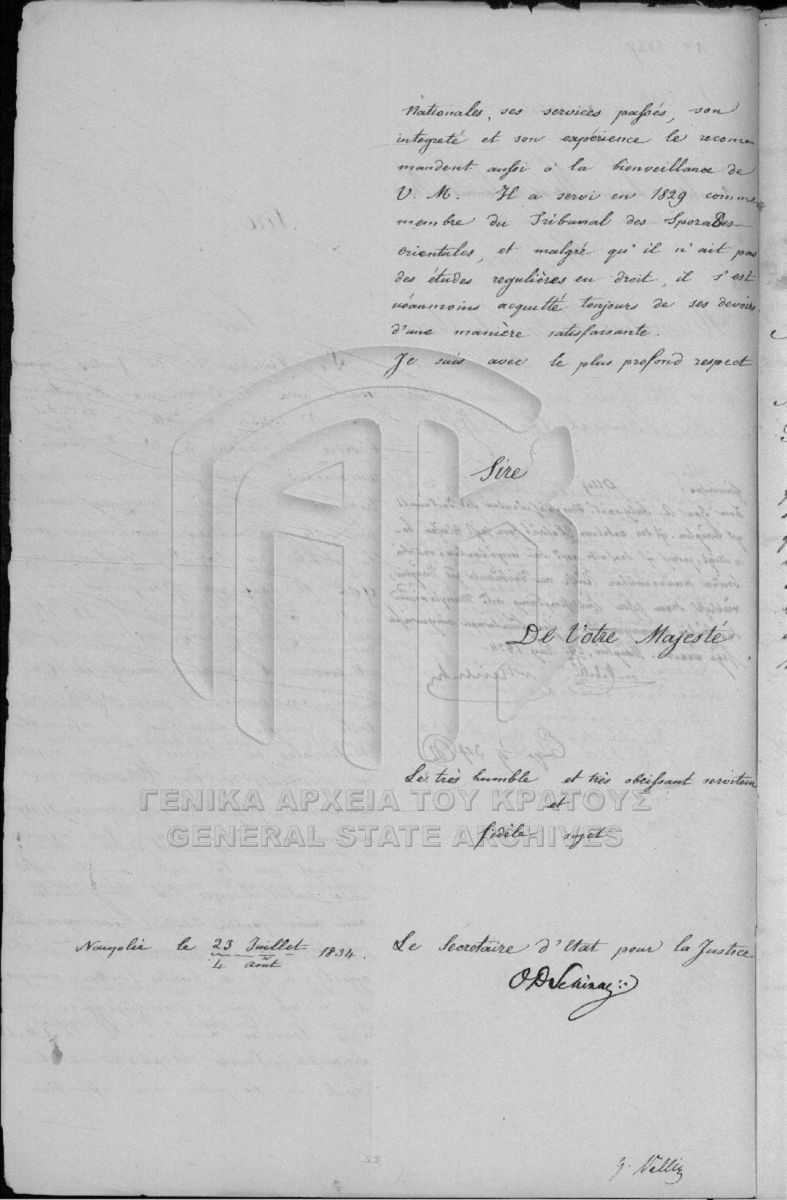 Nationales, ses services passés, son
integreté et son expérience le recom-
mandent aussi à la bienveillance de
V. M. Il a servi en 1829 comme
membre du Tribunal des Sporades
orientales, et malgré qu'il n'ait pas
des études regulières en droit, il s'est
néanmoins acquitté toujours de ses devoirs
d'une manière satisfaisante.
Je suis avec le plus profond respect
Sire
De Votre Majesté
Le très humble et très obeissant serviteur
et
fidèle sujet
ΓΕΝΙΚΑ ΑΡΧΕΙΑ ΤΟΥ ΚΡΑΤΟΥΣ
GENERAL STATE ARCHIVES
Nauplie le 23 Juillet / 4 août 1834.
Le Secretaire d'Etat pour la Justice